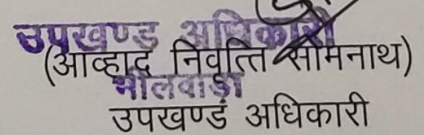 उपखण्ड अधिकारी
(आव्हाद निवृत्ति सोमनाथ)
भीलवाड़ा
उपखण्ड अधिकारी